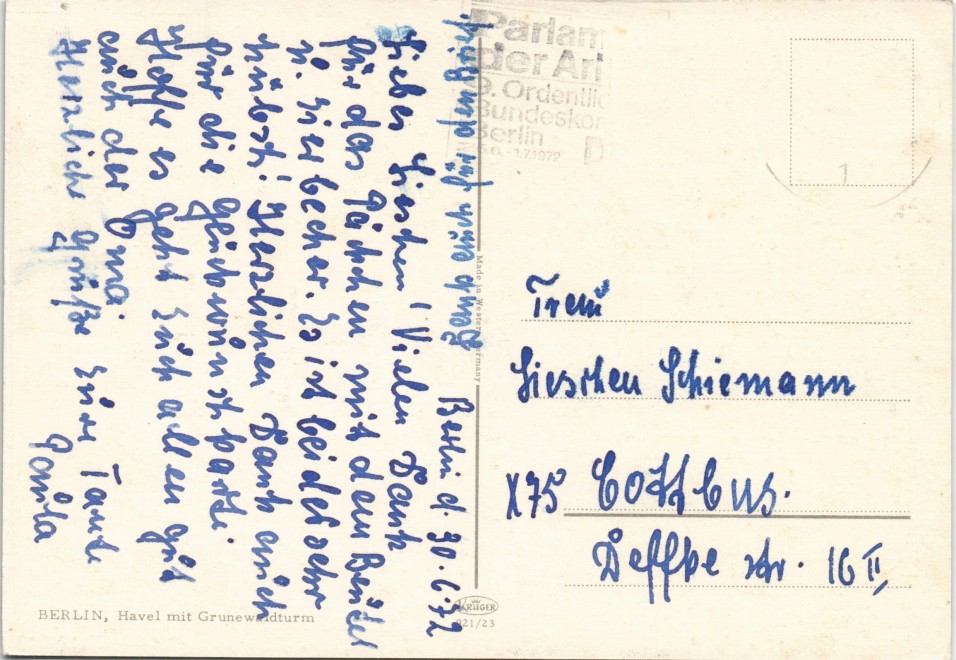 Berlin d. 30.6.72
Liebes Lieschen! Vielen Dank
für das Päckchen mit dem Beutel
u. Eierbecher. Es ist beides sehr
hübsch! Herzlichen Dank auch
für die Glückwunschkarte.
Hoffe es geht Euch allen gut
auch der Oma.
Herzliche Grüße Eure Tante
Paula
Parlam
der Arl
9. Ordentlic
Bundeskon
Berlin
1.7.1972
1
Made in Western Germany
Frau
Lieschen Schiemann
X75 Cottbus.
Deffke str. 16 II
BERLIN, Havel mit Grunewaldturm
KRÜGER
921/23